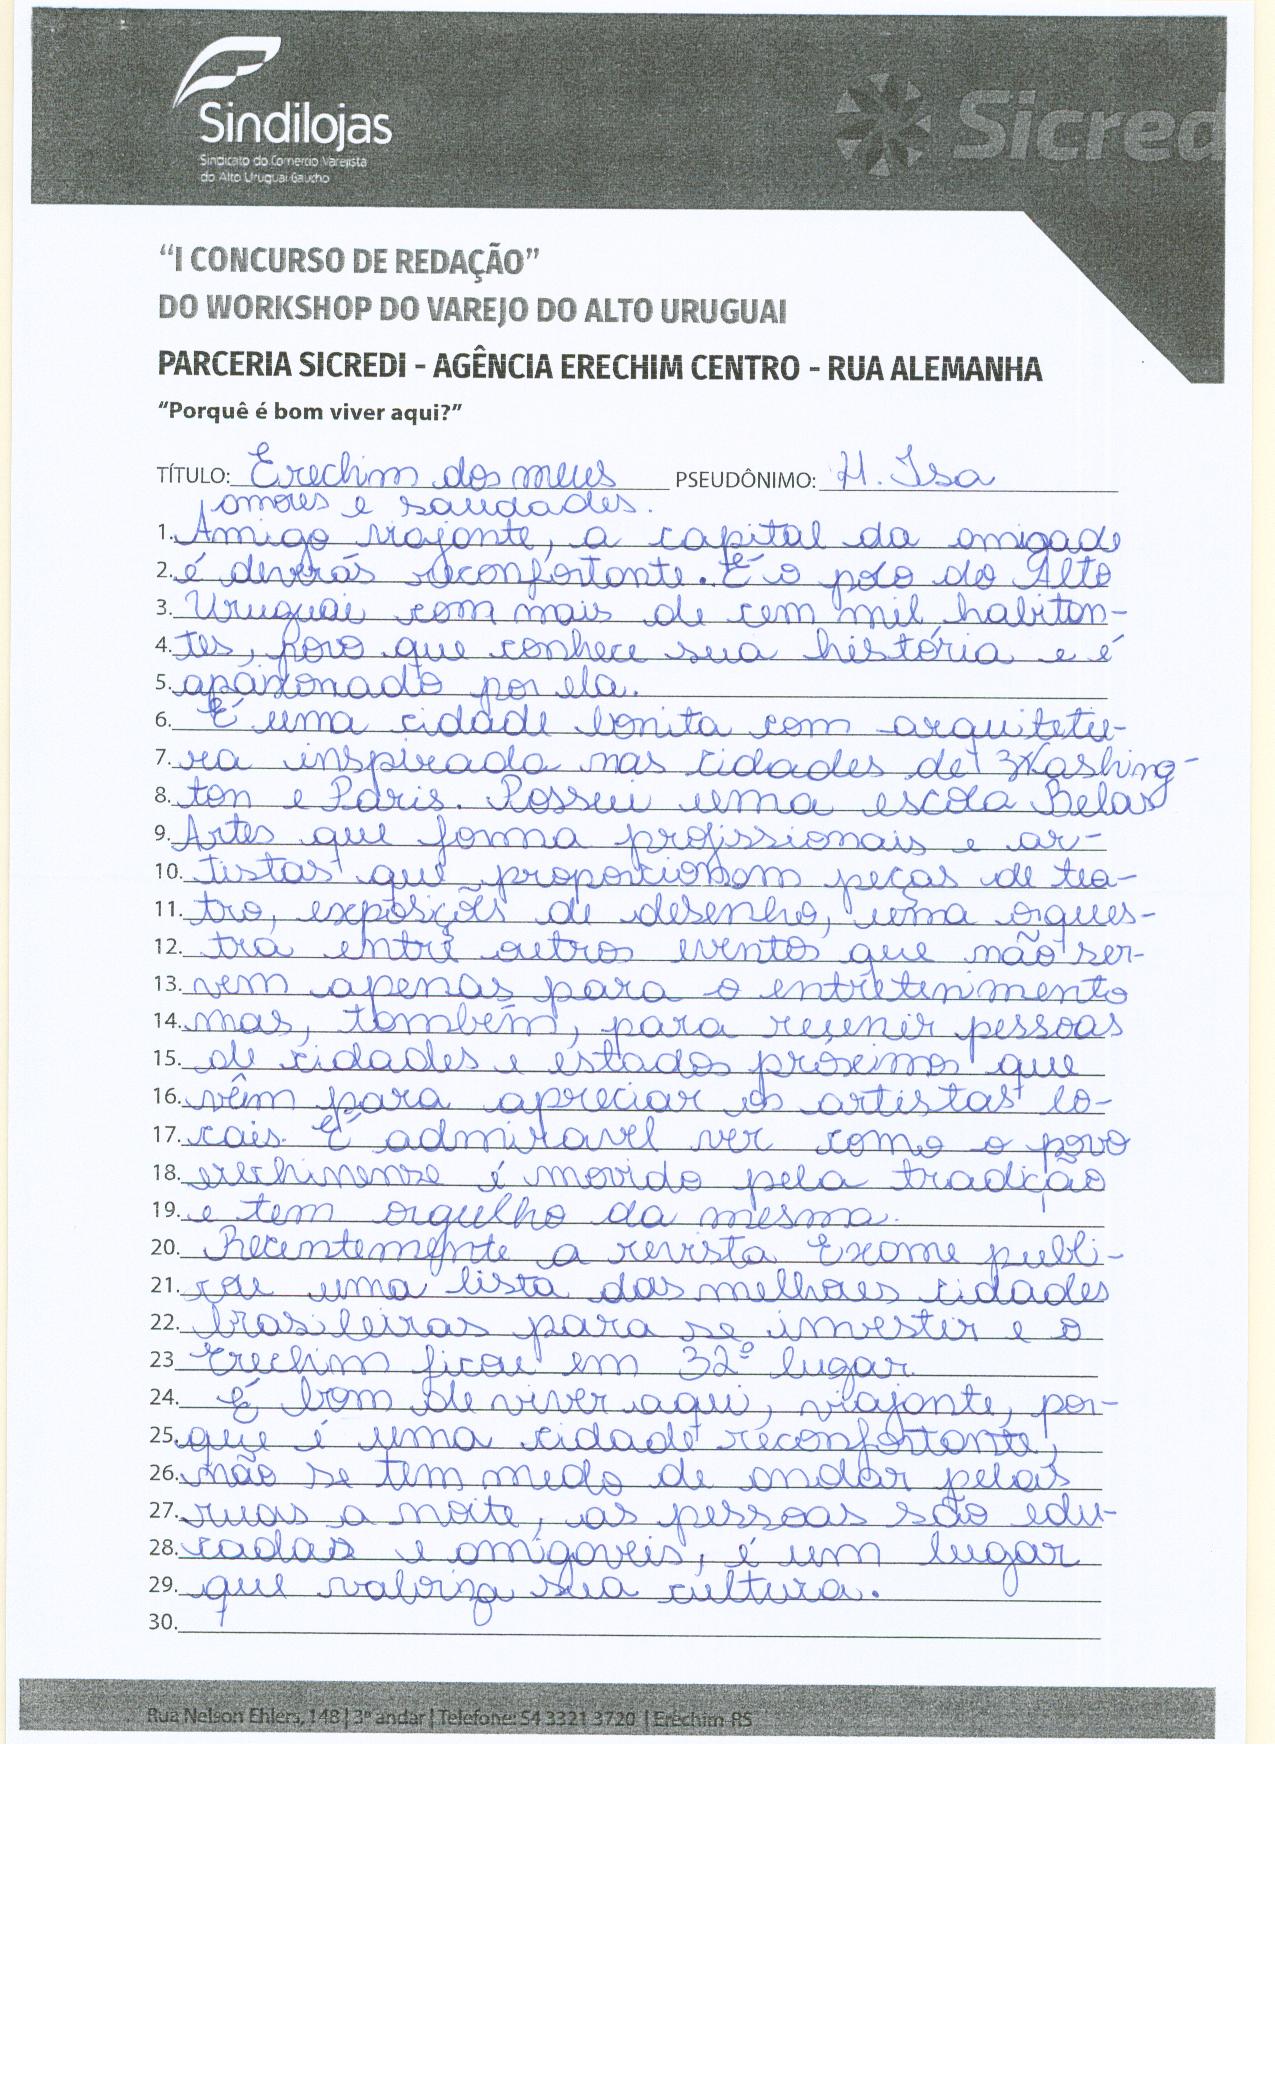 Sindilojas
Sindicato do Comercio Varejista
do Alto Uruguai Gaucho
Sicred
“I CONCURSO DE REDAÇÃO”
DO WORKSHOP DO VAREJO DO ALTO URUGUAI
PARCERIA SICREDI - AGÊNCIA ERECHIM CENTRO - RUA ALEMANHA
“Porquê é bom viver aqui?”
TÍTULO: Erechim dos meus PSEUDÔNIMO: H. Isa
amores e saudades.
1. Amigo viajante, a capital da amigade
2. é deverás reconfortante. É o polo do Alto
3. Uruguai com mais de cem mil habitan-
4. tes, povo que conhece sua história e é
5. apaixonado por ela.
6. É uma cidade bonita com arquitetu-
7. ra inspirada nas cidades de Washing-
8. ton e Paris. Possui uma escola Belas
9. Artes que forma profissionais e ar-
10. tistas que proporcionam peças de tea-
11. tro, exposições de desenho, uma orques-
12. tra entre outros evento que não ser-
13. vem apenas para o entretenimento
14. mas, também, para reunir pessoas
15. de cidades e estados proximos que
16. vêm para apreciar os artistas lo-
17. cais. É admiravel ver como o povo
18. erechinense é movido pela tradição
19. e tem orgulho da mesma.
20. Recentemente a revista Exame publi-
21. cou uma lista das melhores cidades
22. brasileiras para se investir e o
23 Erechim ficou em 32º lugar.
24. É bom de viver aqui, viajante, por-
25. que é uma cidade reconfortante,
26. não se tem medo de andar pelas
27. ruas a noite, as pessoas são edu-
28. cadas e amigaveis, é um lugar
29. que valoriza sua cultura.
30.
Rua Nelson Ehlers, 148 | 3º andar | Telefone: 54 3321 3720 | Erechim-RS